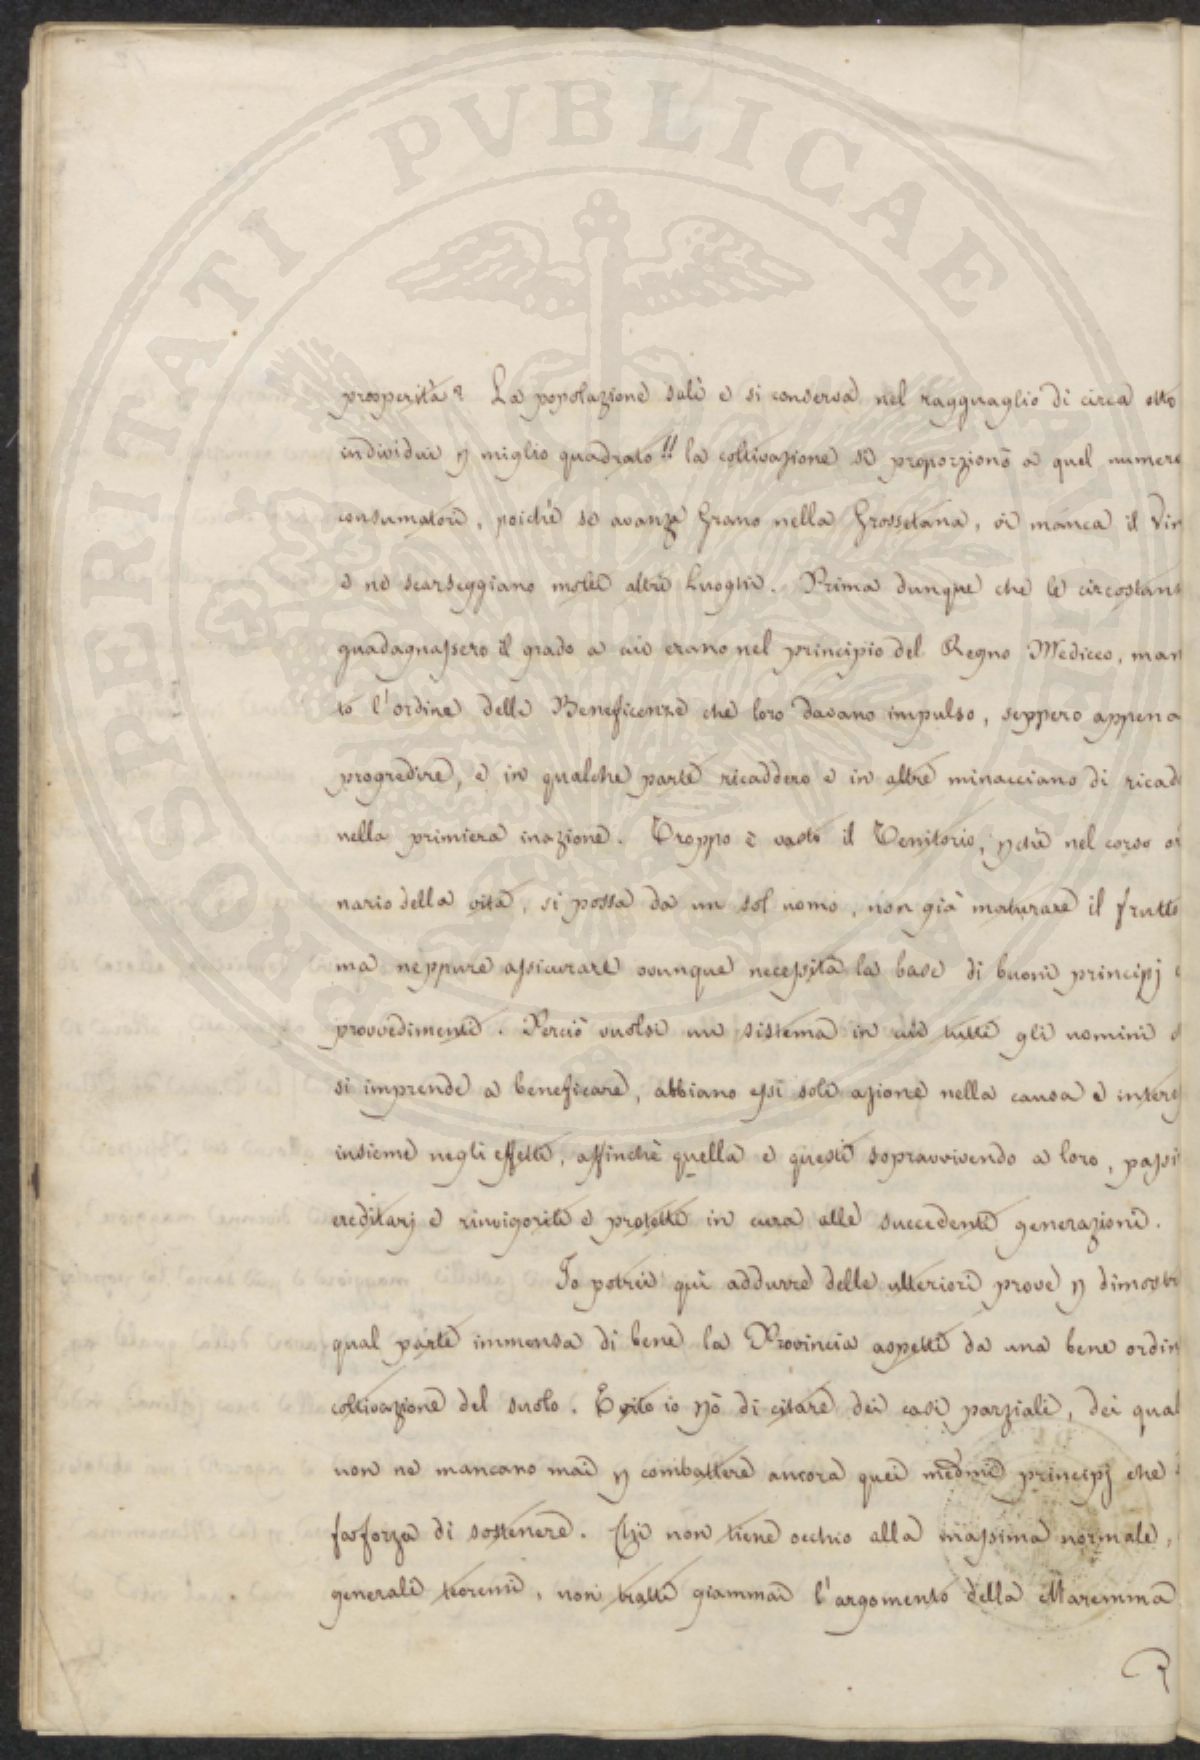 PROSPERITATI PVBLICAE AVGENDAE
prosperità? La popolazione salì e si conserva nel ragguaglio di circa otto
individui p miglio quadrato!! la coltivazione si proporzionò a quel numero
consumatori, poichè se avanza Grano nella Grossetana, vi manca il Vin
e ne scarseggiano molti altri Luoghi. Prima dunque che le circostan
guadagnassero il grado a cui erano nel principio del Regno Mediceo, man
tò l'ordine delle Beneficenze che loro davano impulso, seppero appena
progredire, e in qualche parte ricaddero e in altre minacciano di ricad
nella primiera inazione. Troppo è vasto il Territorio, pchè nel corso or
nario della vita, si possa da un sol uomo, non già maturare il frutto
ma neppure assicurare ovunque necessita la base di buoni principj e
provvedimenti. Perciò vuolsi un sistema in cui tutti gli uomini
si imprende a beneficare, abbiano essi soli azione nella causa e interes
insieme negli effetti, affinchè quella e questi sopravvivendo a loro, passi
ereditarj e rinvigoriti e protetti in cura alle succedenti generazioni.
Io potrei quì addurre delle ulteriori prove p dimostr
qual parte immensa di bene la Provincia aspetti da una bene ordin
coltivazione del suolo. Evito io pò di citare dei casi parziali, dei qual
non ne mancano mai p combattere ancora quei medmi principj che
fa forza di sostenere. Chi non tiene occhio alla massima normale,
generali teoremi, non tratti giammai l'argomento della Maremma